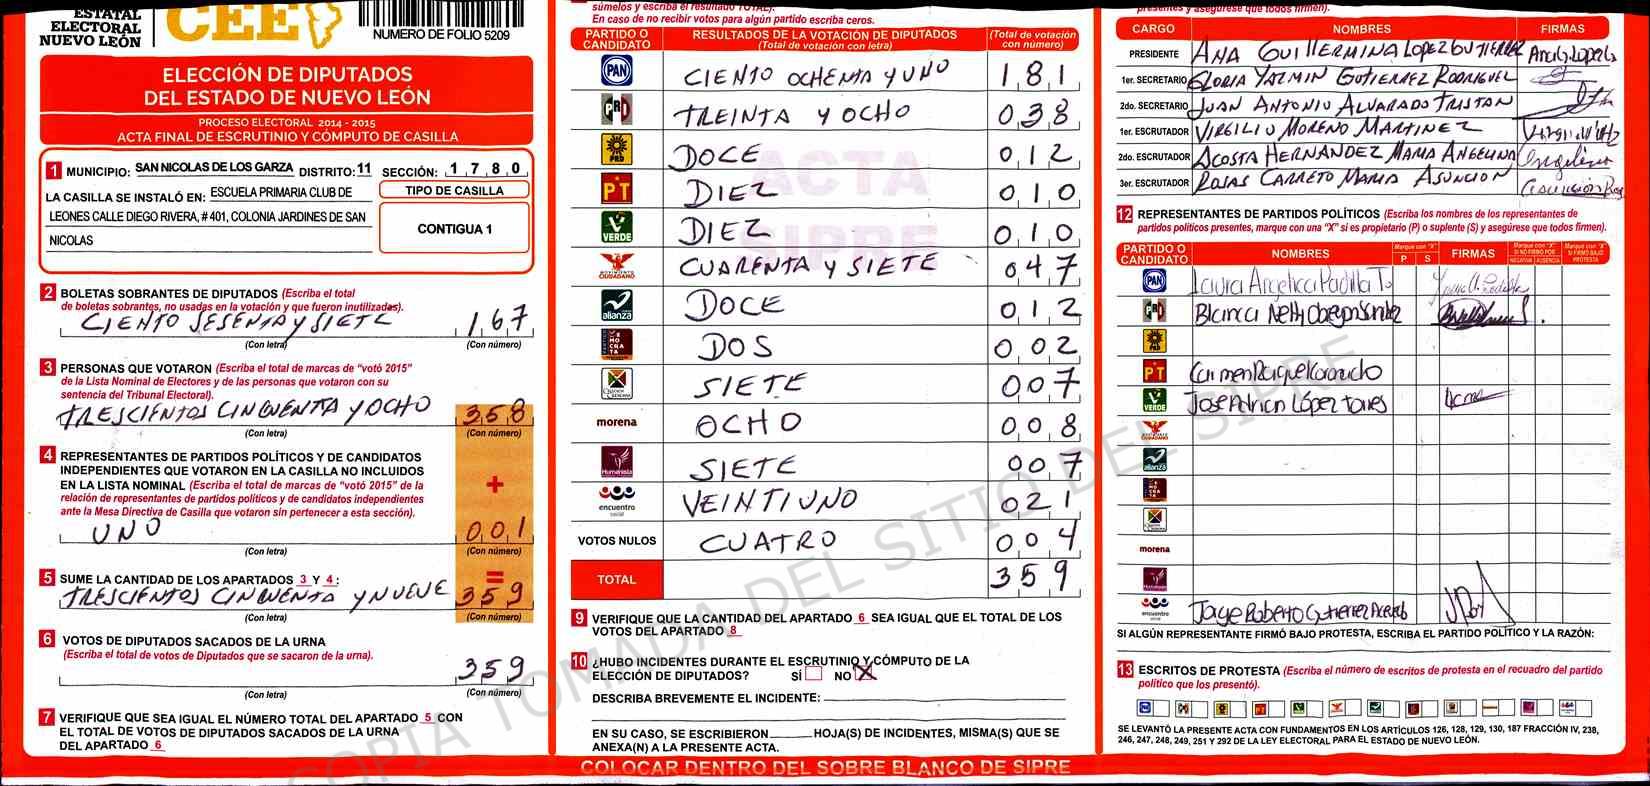 ESTATAL
ELECTORAL
NUEVO LEÓN
CEE
NUMERO DE FOLIO 5209
ELECCIÓN DE DIPUTADOS
DEL ESTADO DE NUEVO LEÓN
PROCESO ELECTORAL 2014 - 2015
ACTA FINAL DE ESCRUTINIO Y CÓMPUTO DE CASILLA
1 MUNICIPIO: SAN NICOLAS DE LOS GARZA DISTRITO: 11 SECCIÓN: 1 7 8 0
LA CASILLA SE INSTALÓ EN: ESCUELA PRIMARIA CLUB DE
LEONES CALLE DIEGO RIVERA, # 401, COLONIA JARDINES DE SAN
NICOLAS
TIPO DE CASILLA
CONTIGUA 1
2 BOLETAS SOBRANTES DE DIPUTADOS (Escriba el total
de boletas sobrantes, no usadas en la votación y que fueron inutilizadas).
CIENTO SESENTA Y SIETE 1 6 7
(Con letra) (Con número)
3 PERSONAS QUE VOTARON (Escriba el total de marcas de "votó 2015"
de la Lista Nominal de Electores y de las personas que votaron con su
sentencia del Tribunal Electoral).
TRESCIENTOS CINCUENTA Y OCHO 3 5 8
(Con letra) (Con número)
4 REPRESENTANTES DE PARTIDOS POLÍTICOS Y DE CANDIDATOS
INDEPENDIENTES QUE VOTARON EN LA CASILLA NO INCLUIDOS
EN LA LISTA NOMINAL (Escriba el total de marcas de "votó 2015" de la
relación de representantes de partidos políticos y de candidatos independientes
ante la Mesa Directiva de Casilla que votaron sin pertenecer a esta sección).
+
UNO 0 0 1
(Con letra) (Con número)
=
5 SUME LA CANTIDAD DE LOS APARTADOS 3 Y 4:
TRESCIENTOS CINCUENTA Y NUEVE 3 5 9
(Con letra) (Con número)
6 VOTOS DE DIPUTADOS SACADOS DE LA URNA
(Escriba el total de votos de Diputados que se sacaron de la urna).
3 5 9
(Con letra) (Con número)
7 VERIFIQUE QUE SEA IGUAL EL NÚMERO TOTAL DEL APARTADO 5 CON
EL TOTAL DE VOTOS DE DIPUTADOS SACADOS DE LA URNA
DEL APARTADO 6
súmelos y escriba el resultado TOTAL).
En caso de no recibir votos para algún partido escriba ceros.
PARTIDO O CANDIDATO RESULTADOS DE LA VOTACIÓN DE DIPUTADOS (Total de votación con letra) (Total de votación con número)
PAN CIENTO OCHENTA Y UNO 1 8 1
PRI TREINTA Y OCHO 0 3 8
PRD DOCE 0 1 2
PT DIEZ 0 1 0
VERDE DIEZ 0 1 0
MOVIMIENTO CIUDADANO CUARENTA Y SIETE 0 4 7
alianza DOCE 0 1 2
DEMOCRATA DOS 0 0 2
SIETE 0 0 7
morena OCHO 0 0 8
Humanista SIETE 0 0 7
encuentro social VEINTIUNO 0 2 1
VOTOS NULOS CUATRO 0 0 4
TOTAL 3 5 9
ACTA
SIPRE
9 VERIFIQUE QUE LA CANTIDAD DEL APARTADO 6 SEA IGUAL QUE EL TOTAL DE LOS
VOTOS DEL APARTADO 8
10 ¿HUBO INCIDENTES DURANTE EL ESCRUTINIO Y CÓMPUTO DE LA
ELECCIÓN DE DIPUTADOS? SÍ NO X
DESCRIBA BREVEMENTE EL INCIDENTE:
EN SU CASO, SE ESCRIBIERON HOJA(S) DE INCIDENTES, MISMA(S) QUE SE
ANEXA(N) A LA PRESENTE ACTA.
COLOCAR DENTRO DEL SOBRE BLANCO DE SIPRE
presentes y asegúrese que todos firmen).
CARGO NOMBRES FIRMAS
PRESIDENTE ANA GUILLERMINA LOPEZ GUTIERREZ
1er. SECRETARIO GLORIA YAZMIN GUTIERREZ RODRIGUEZ
2do. SECRETARIO JUAN ANTONIO ALVARADO TRISTAN
1er. ESCRUTADOR VIRGILIO MORENO MARTINEZ
2do. ESCRUTADOR ACOSTA HERNANDEZ MARIA ANGELINA
3er. ESCRUTADOR ROSAS CARRETO MARIA ASUNCION
12 REPRESENTANTES DE PARTIDOS POLÍTICOS (Escriba los nombres de los representantes de
partidos políticos presentes, marque con una "X" si es propietario (P) o suplente (S) y asegúrese que todos firmen).
PARTIDO O CANDIDATO NOMBRES Marque con "X" P S FIRMAS Marque con "X" SI NO FIRMÓ POR NEGATIVA AUSENCIA Marque con "X" SI FIRMÓ BAJO PROTESTA
PAN Laura Angelica Padilla T.
PRI Blanca Nelly Obregon
PRD
PT Carmen Raquel
VERDE Jose Adrian López Torres
MOVIMIENTO CIUDADANO
alianza
DEMOCRATA
morena
Humanista
encuentro social Jorge Roberto Gutierrez
SI ALGÚN REPRESENTANTE FIRMÓ BAJO PROTESTA, ESCRIBA EL PARTIDO POLÍTICO Y LA RAZÓN:
13 ESCRITOS DE PROTESTA (Escriba el número de escritos de protesta en el recuadro del partido
político que los presentó).
SE LEVANTÓ LA PRESENTE ACTA CON FUNDAMENTOS EN LOS ARTÍCULOS 126, 128, 129, 130, 187 FRACCIÓN IV, 238,
246, 247, 248, 249, 251 Y 292 DE LA LEY ELECTORAL PARA EL ESTADO DE NUEVO LEÓN.
COPIA TOMADA DEL SITIO DEL SIPRE